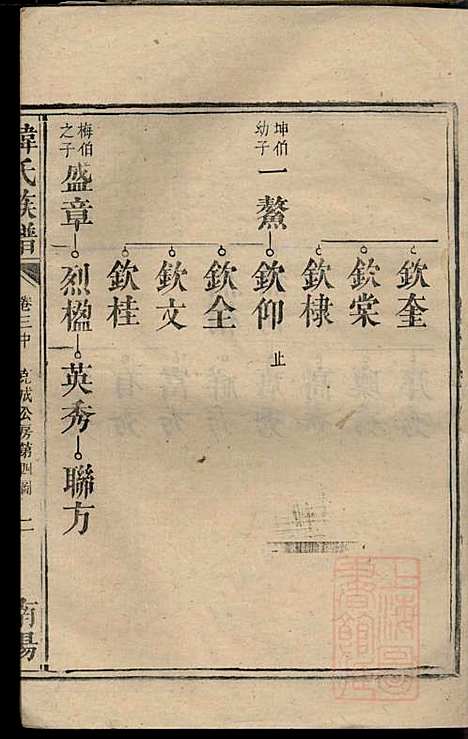 欽奎
欽棠
欽棣
坤伯
幼子
一鰲
欽仰
止
欽全
欽文
欽桂
梅伯
之子
盛章
烈楹
英秀
聯方
韓氏族譜
卷三中
克成公房第四圖
二
南陽
上海圖
書館藏